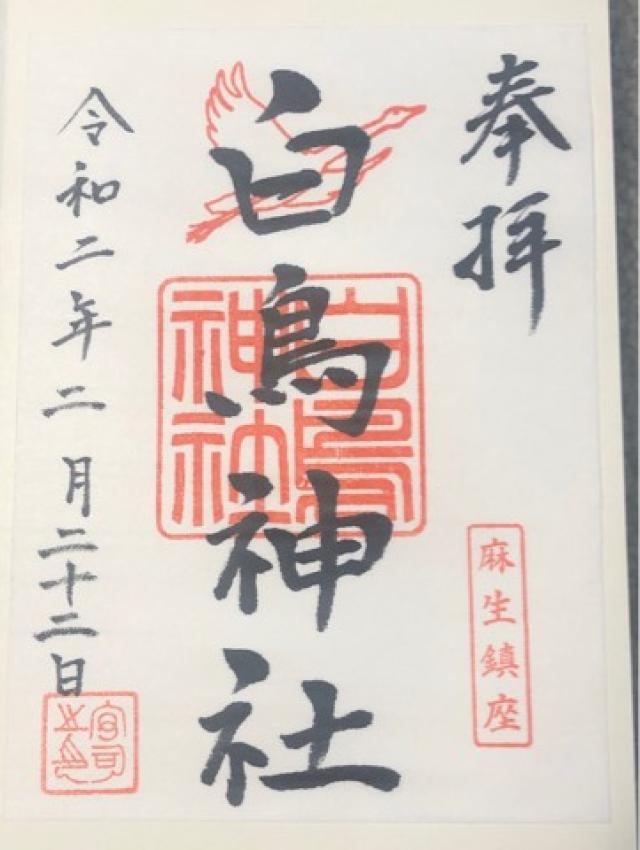 奉拝
麻生鎮座
白鳥神社
白鳥
神社
令和二年二月二十二日
宮司之印